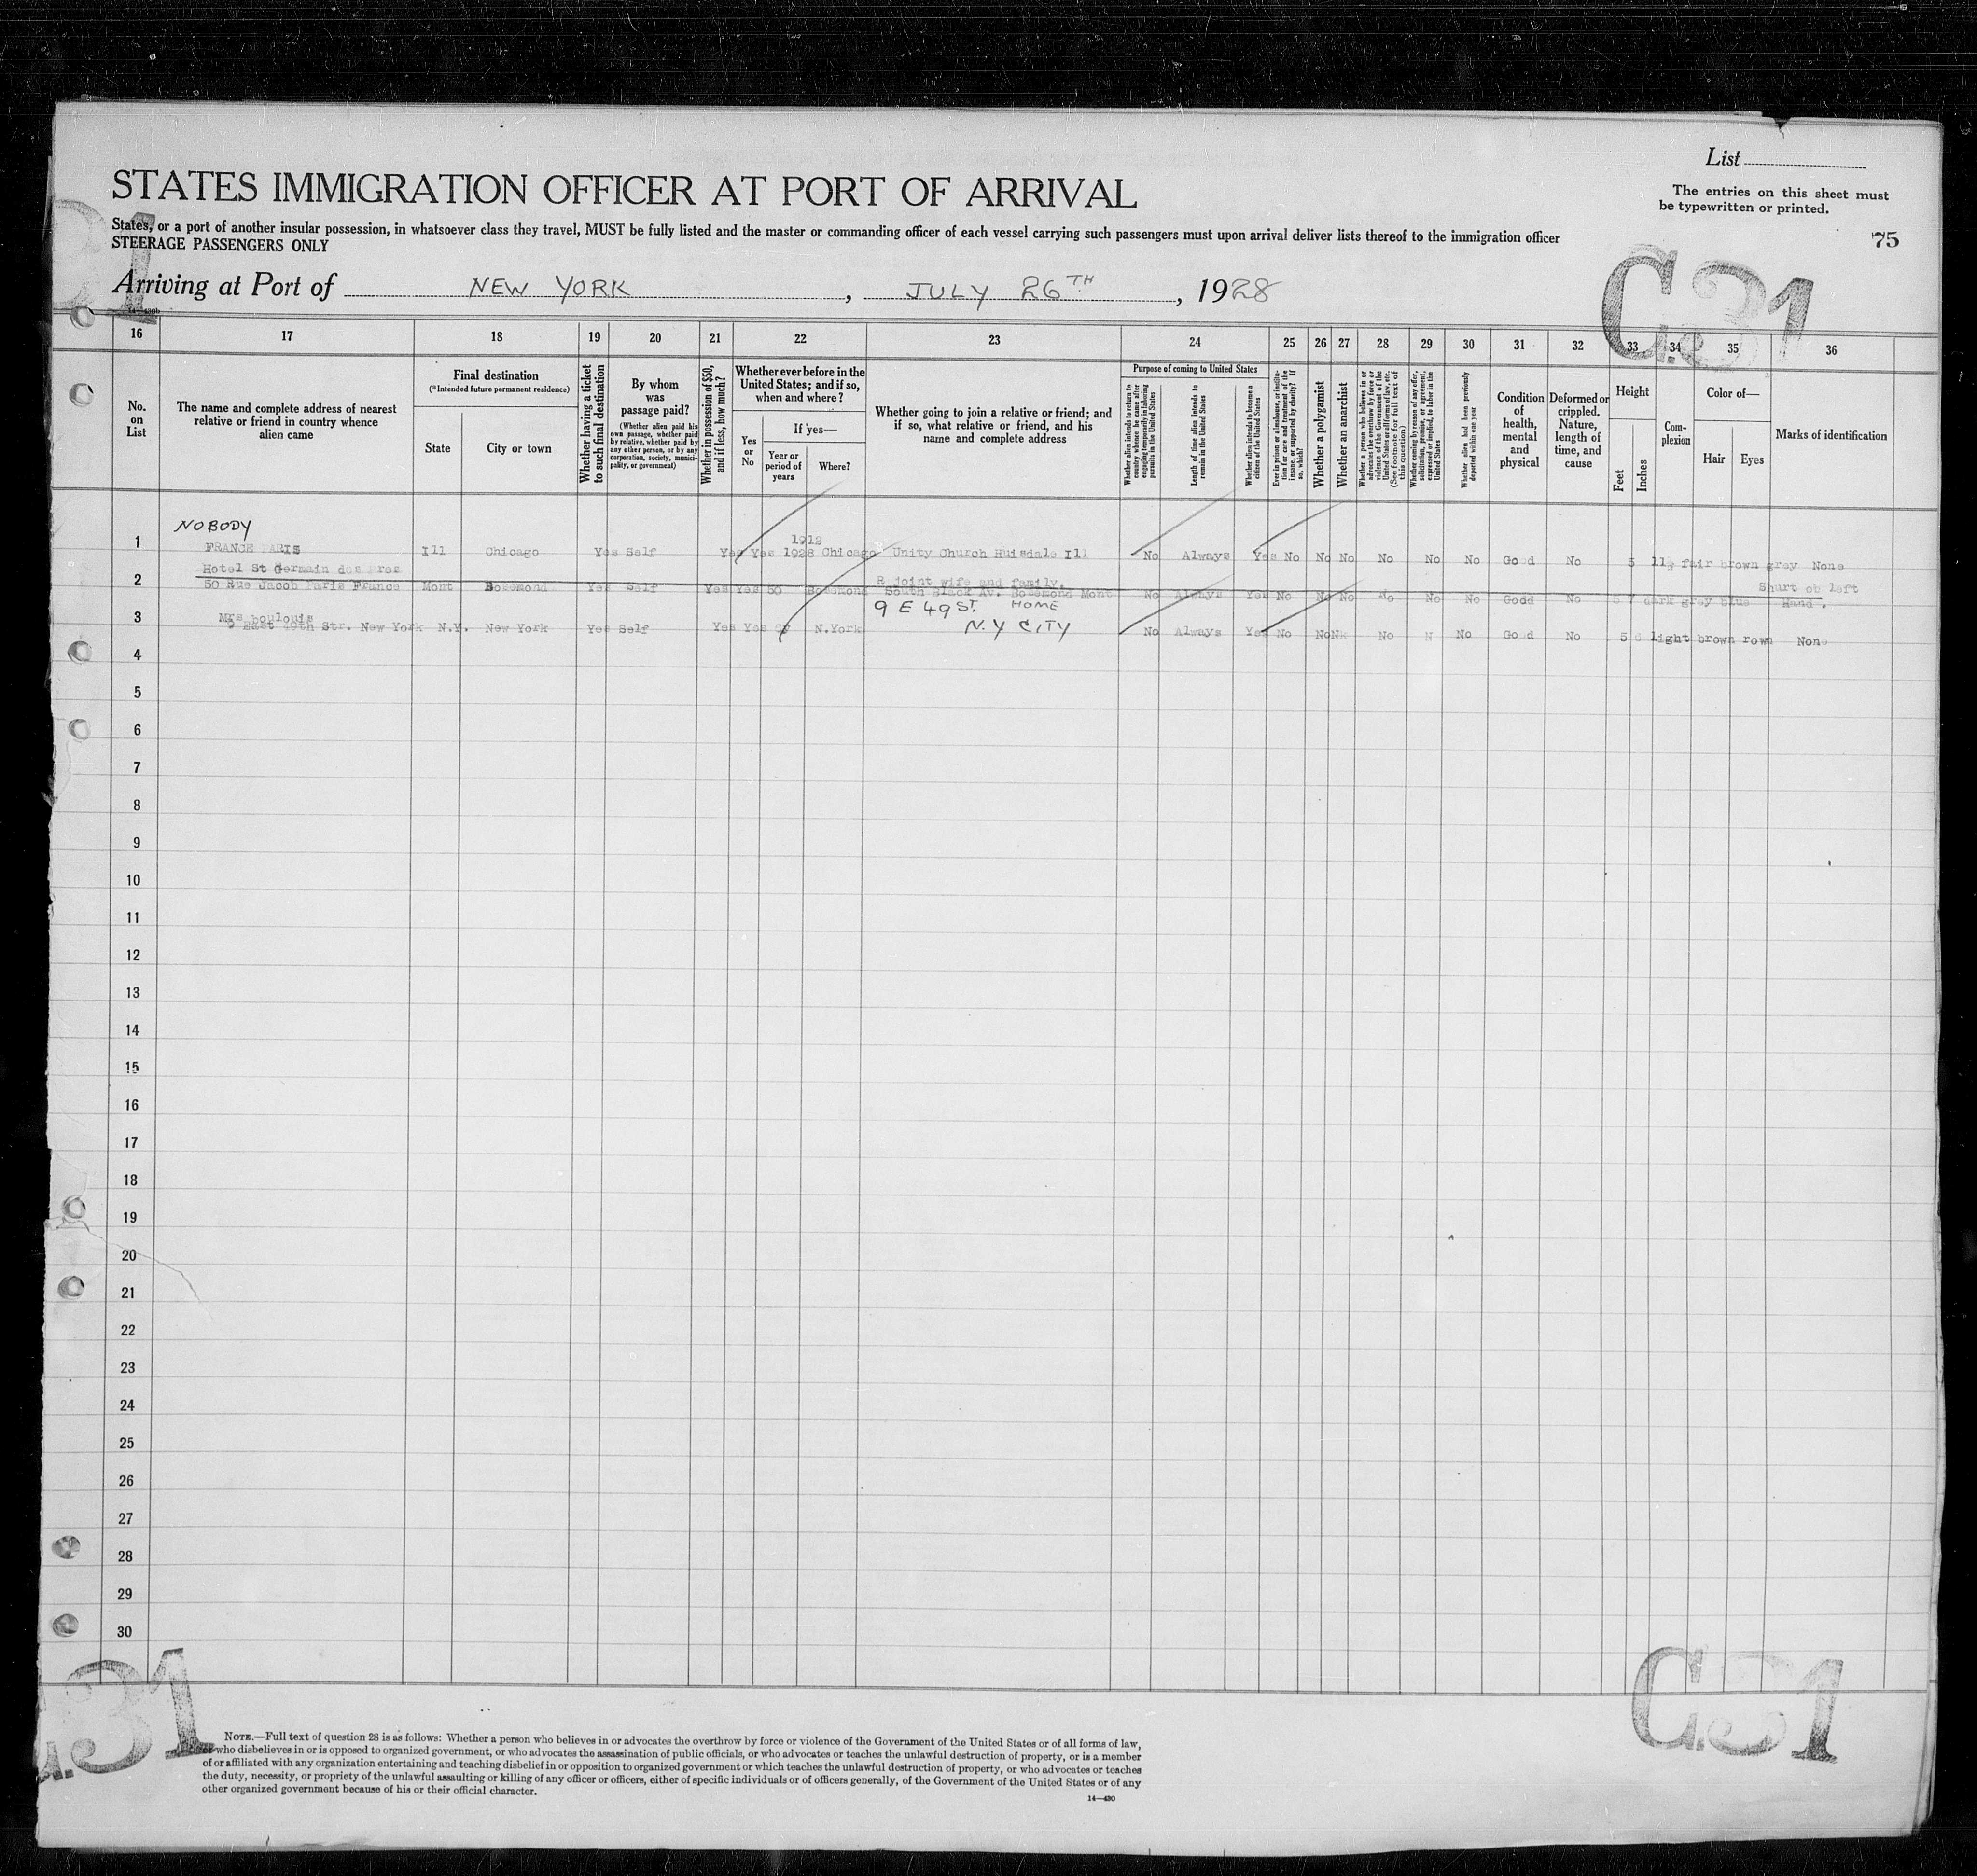 List
STATES IMMIGRATION OFFICER AT PORT OF ARRIVAL
The entries on this sheet must
be typewritten or printed.
States, or a port of another insular possession, in whatsoever class they travel, MUST be fully listed and the master or commanding officer of each vessel carrying such passengers must upon arrival deliver lists thereof to the immigration officer
STEERAGE PASSENGERS ONLY
75
C.31
Arriving at Port of NEW YORK, JULY 26TH, 1928
16 17 18 19 20 21 22 23 24 25 26 27 28 29 30 31 32 33 34 35 36
No.
on
List
The name and complete address of nearest
relative or friend in country whence
alien came
Final destination
(*Intended future permanent residence)
State
City or town
Whether having a ticket
to such final destination
By whom
was
passage paid?
(Whether alien paid his
own passage, whether paid
by relative, whether paid by
any other person, or by any
corporation, society, munici-
pality, or government)
Whether in possession of $50,
and if less, how much?
Whether ever before in the
United States; and if so,
when and where?
Yes
or
No
If yes—
Year or
period of
years
Where?
Whether going to join a relative or friend; and
if so, what relative or friend, and his
name and complete address
Purpose of coming to United States
Whether alien intends to return to
country whence he came after
engaging temporarily in laboring
pursuits in the United States
Length of time alien intends to
remain in the United States
Whether alien intends to become a
citizen of the United States
Ever in prison or almshouse, or institu-
tion for care and treatment of the
insane, or supported by charity? If
so, which?
Whether a polygamist
Whether an anarchist
Whether a person who believes in or
advocates the overthrow by force or
violence of the Government of the
United States or all forms of law, etc.
(See footnote for full text of
this question)
Whether coming by reason of any offer,
solicitation, promise, or agreement,
expressed or implied, to labor in the
United States
Whether alien had been previously
deported within one year
Condition
of
health,
mental
and
physical
Deformed or
crippled.
Nature,
length of
time, and
cause
Height
Feet
Inches
Com-
plexion
Color of—
Hair
Eyes
Marks of identification
NOBODY
1912
1 FRANCE PARIS Ill Chicago Yes Self Yes Yes 1928 Chicago Unity Church Huisdale Ill No Always Yes No No No No No No Good No 5 11½ fair brown gray None
Hotel St Germain des Pres
R joint wife and family.
Shurt ob left
2 50 Rue Jacob Paris France Mont Bosemond Yes Self Yes Yes Bosemond South Black Av. Bosemond Mont No Always Yes No No No No No Good No 5 7 dark grey blue Hand.
9 E 49 ST. HOME
3 Mrs boulouis
9 East 49th Str. New York N.Y. New York Yes Self Yes Yes N.York N.Y CITY No Always Yes No No No No Good No 5 light brown rown None
4
5
6
7
8
9
10
11
12
13
14
15
16
17
18
19
20
21
22
23
24
25
26
27
28
29
30
31
C.31
NOTE.—Full text of question 28 is as follows: Whether a person who believes in or advocates the overthrow by force or violence of the Government of the United States or of all forms of law,
or who disbelieves in or is opposed to organized government, or who advocates the assassination of public officials, or who advocates or teaches the unlawful destruction of property, or is a member
of or affiliated with any organization entertaining and teaching disbelief in or opposition to organized government or which teaches the unlawful destruction of property, or who advocates or teaches
the duty, necessity, or propriety of the unlawful assaulting or killing of any officer or officers, either of specific individuals or of officers generally, of the Government of the United States or of any
other organized government because of his or their official character.
14—430